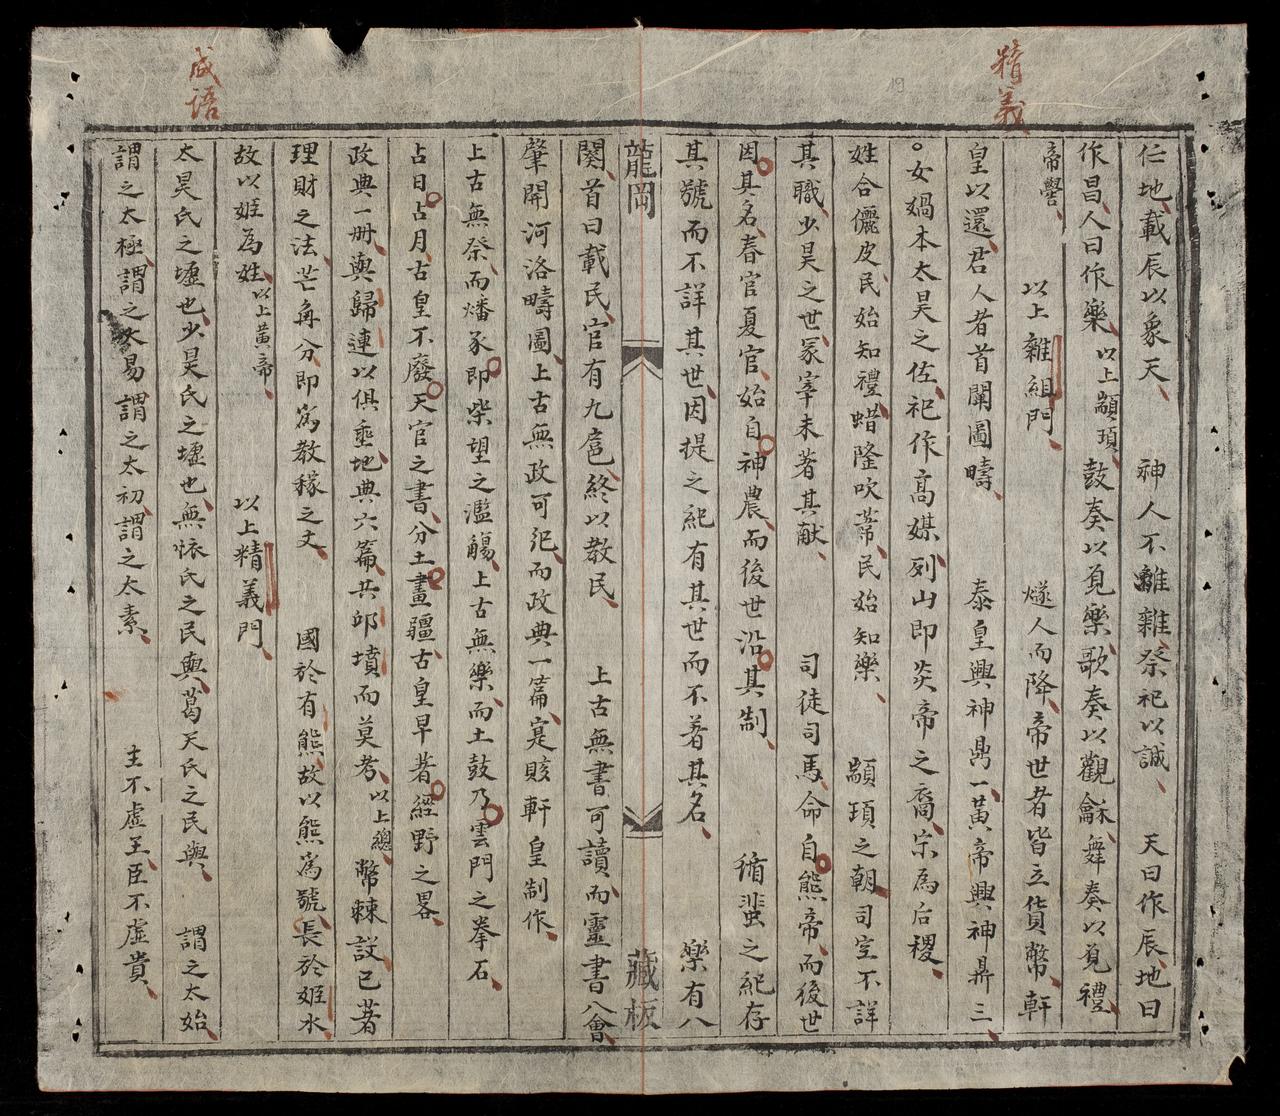 精義
仁地載辰以象天 神人不離雜祭祀以誠 天曰作辰地曰
作昌人曰作樂 以上顓頊 鼓奏以見樂歌奏以觀龢舞奏以見禮
帝嚳 以上雜組門 燧人而降帝世者皆立貨幣軒
皇以還君人者首闡圖疇 泰皇興神鼎一黃帝興神鼎三
女媧本太昊之佐祀作高媒列山即炎帝之裔宗為后稷
姓合儷皮民始知禮蜡隆吹葦民始知樂 顓頊之朝司空不詳
其職少昊之世冢宰未著其献 司徒司馬命自熊帝而後世
因其名春官夏官始自神農而後世沿其制 循蜚之紀存
其號而不詳其世因提之紀有其世而不著其名 樂有八
龍岡 藏板
闋首曰載民官有九扈終以教民 上古無書可讀而靈書八會
肇開河洛疇圖上古無政可紀而政典一篇寔賅軒皇制作
上古無祭而燔豕即柴望之濫觴上古無樂而土鼓乃雲門之拳石
占日占月古皇不廢天官之書分土畫疆古皇早著經野之畧
政典一冊與歸連以俱垂地典六篇共邱墳而莫考 以上總 幣棘設已著
理財之法芒角分即寫教稼之文 國於有熊故以熊為號長於姬水
故以姬為姓 以上黃帝 以上精義門
成語
太昊氏之墟也少昊氏之墟也無怀氏之民與葛天氏之民與 謂之太始
謂之太極謂之太易謂之太初謂之太素 主不虛王臣不虛貴